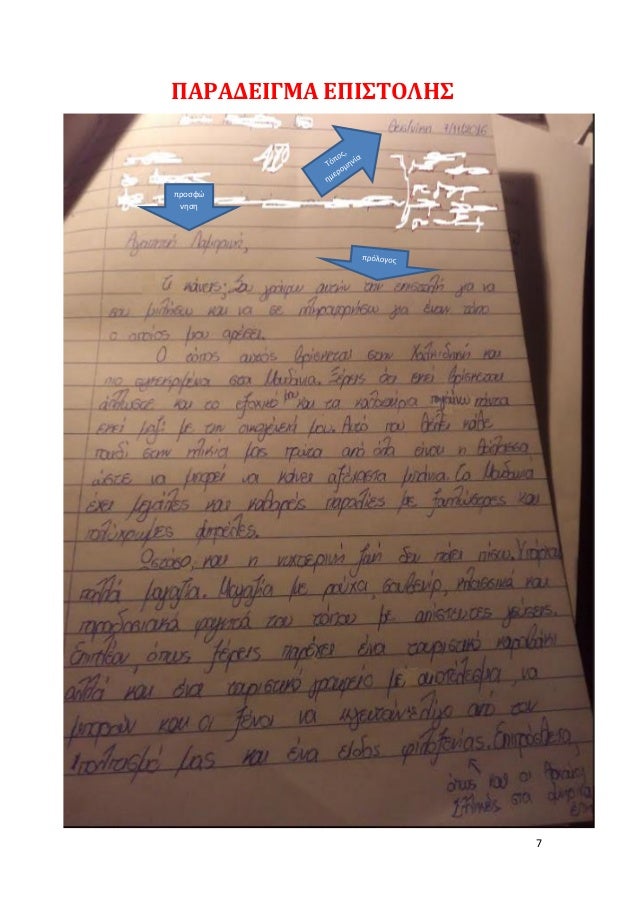 ΠΑΡΑΔΕΙΓΜΑ ΕΠΙΣΤΟΛΗΣ
Θεσ/νίκη 7/11/2016
Τόπος,
ημερομηνία
προσφώ
νηση
Αγαπητή Λαμπρινή,
πρόλογος
Τι κάνεις; Σου γράφω αυτήν την επιστολή για να
σου μιλήσω και να σε πληροφορήσω για έναν τόπο
ο οποίος μου αρέσει.
Ο τόπος αυτός βρίσκεται στην Χαλκιδική και
πιο συγκεκριμένα στα Μουδανιά. Ξέρεις ότι εκεί βρίσκεται
άλλωστε και το εξοχικό μου και τα καλοκαίρια πηγαίνω πάντα
εκεί μαζί με την οικογένειά μου. Αυτό που θέλει κάθε
παιδί στην ηλικία μας πρώτα από όλα είναι η θάλασσα,
ώστε να μπορεί να κάνει αξέχαστα μπάνια. Τα Μουδανιά
έχει μεγάλες και καθαρές παραλίες με ξαπλώστρες και
πολύχρωμες ομπρέλες.
Ωστόσο, και η νυχτερινή ζωή δεν πάει πίσω. Υπάρχουν
πολλά μαγαζιά. Μαγαζιά με ρούχα, σουβενίρ, κλασσικά και
παραδοσιακά φαγητά του τόπου με απίστευτες γεύσεις.
Επιπλέον, όπως ξέρεις παρέχει ένα τουριστικό καραβάκι
αλλά και ένα τουριστικό γραφείο με αποτέλεσμα, να
μπορούν και οι ξένοι να γευτούν λίγο από τον
πολιτισμό μας και ένα είδος φιλοξενίας. Επιπρόσθετα,
όπως και οι Αρχαίοι
Έλληνες στα ομηρικά
έπη
7